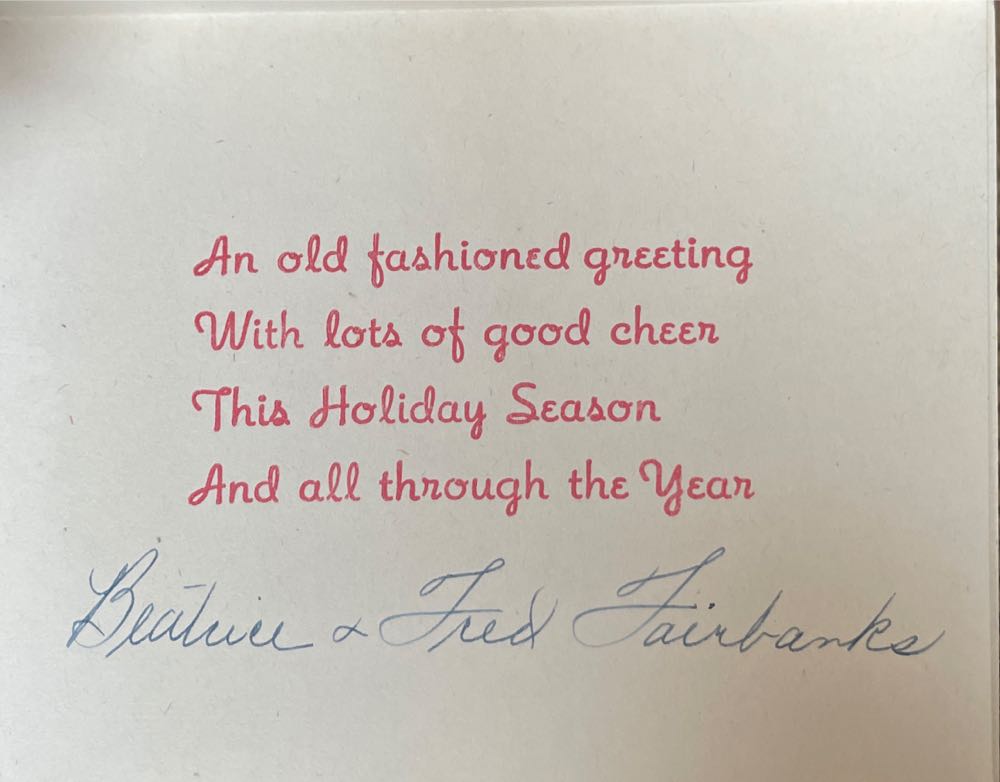 An old fashioned greeting
With lots of good cheer
This Holiday Season
And all through the Year
Beatrice & Fred Fairbanks